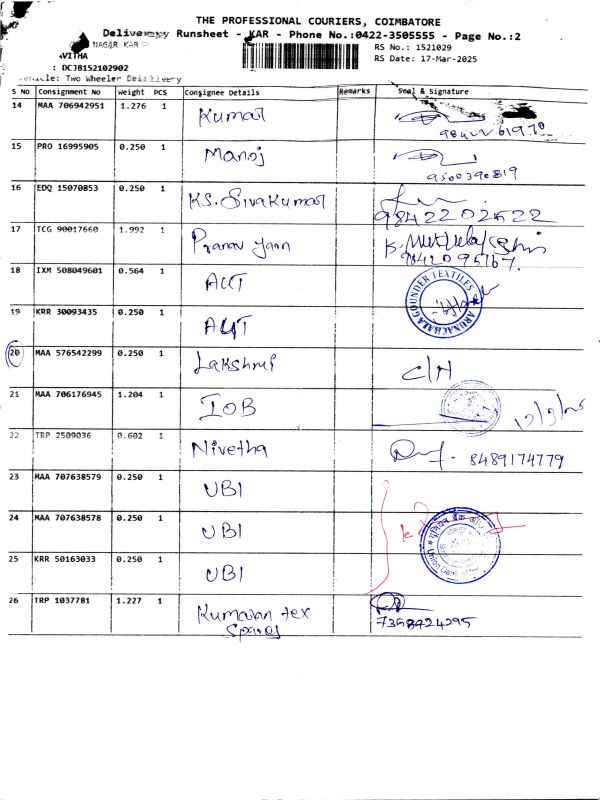 THE PROFESSIONAL COURIERS, COIMBATORE
Delivery Runsheet - KAR - Phone No.:0422-3505555 - Page No.:2
NAGAR KAR
RS No.: 1521029
AVITHA
RS Date: 17-Mar-2025
.: DCJB152102902
Vehicle: Two Wheeler Delivery
S No Consignment No Weight PCS Consignee Details Remarks Seal & Signature
14 MAA 706942951 1.276 1 Kumar
15 PRO 16995905 0.250 1 Manoj
9500390819
16 EDQ 15070853 0.250 1 K.S. Sivakumar
9842202622
17 TCG 90017660 1.992 1 Pranav yarn
9842095167.
18 IXM 508049601 0.564 1 AGT
ARUNACHALA GOUNDER TEXTILES
19 KRR 30093435 0.250 1 AGT
20 MAA 576542299 0.250 1 Lakshmi C/H
21 MAA 706176945 1.204 1 IOB
22 TRP 2509036 0.602 1 Nivetha 8489174779
23 MAA 707638579 0.250 1 UBI
24 MAA 707638578 0.250 1 UBI
25 KRR 50163033 0.250 1 UBI
26 TRP 1037781 1.227 1 Kumaran tex
Spares
7358924295